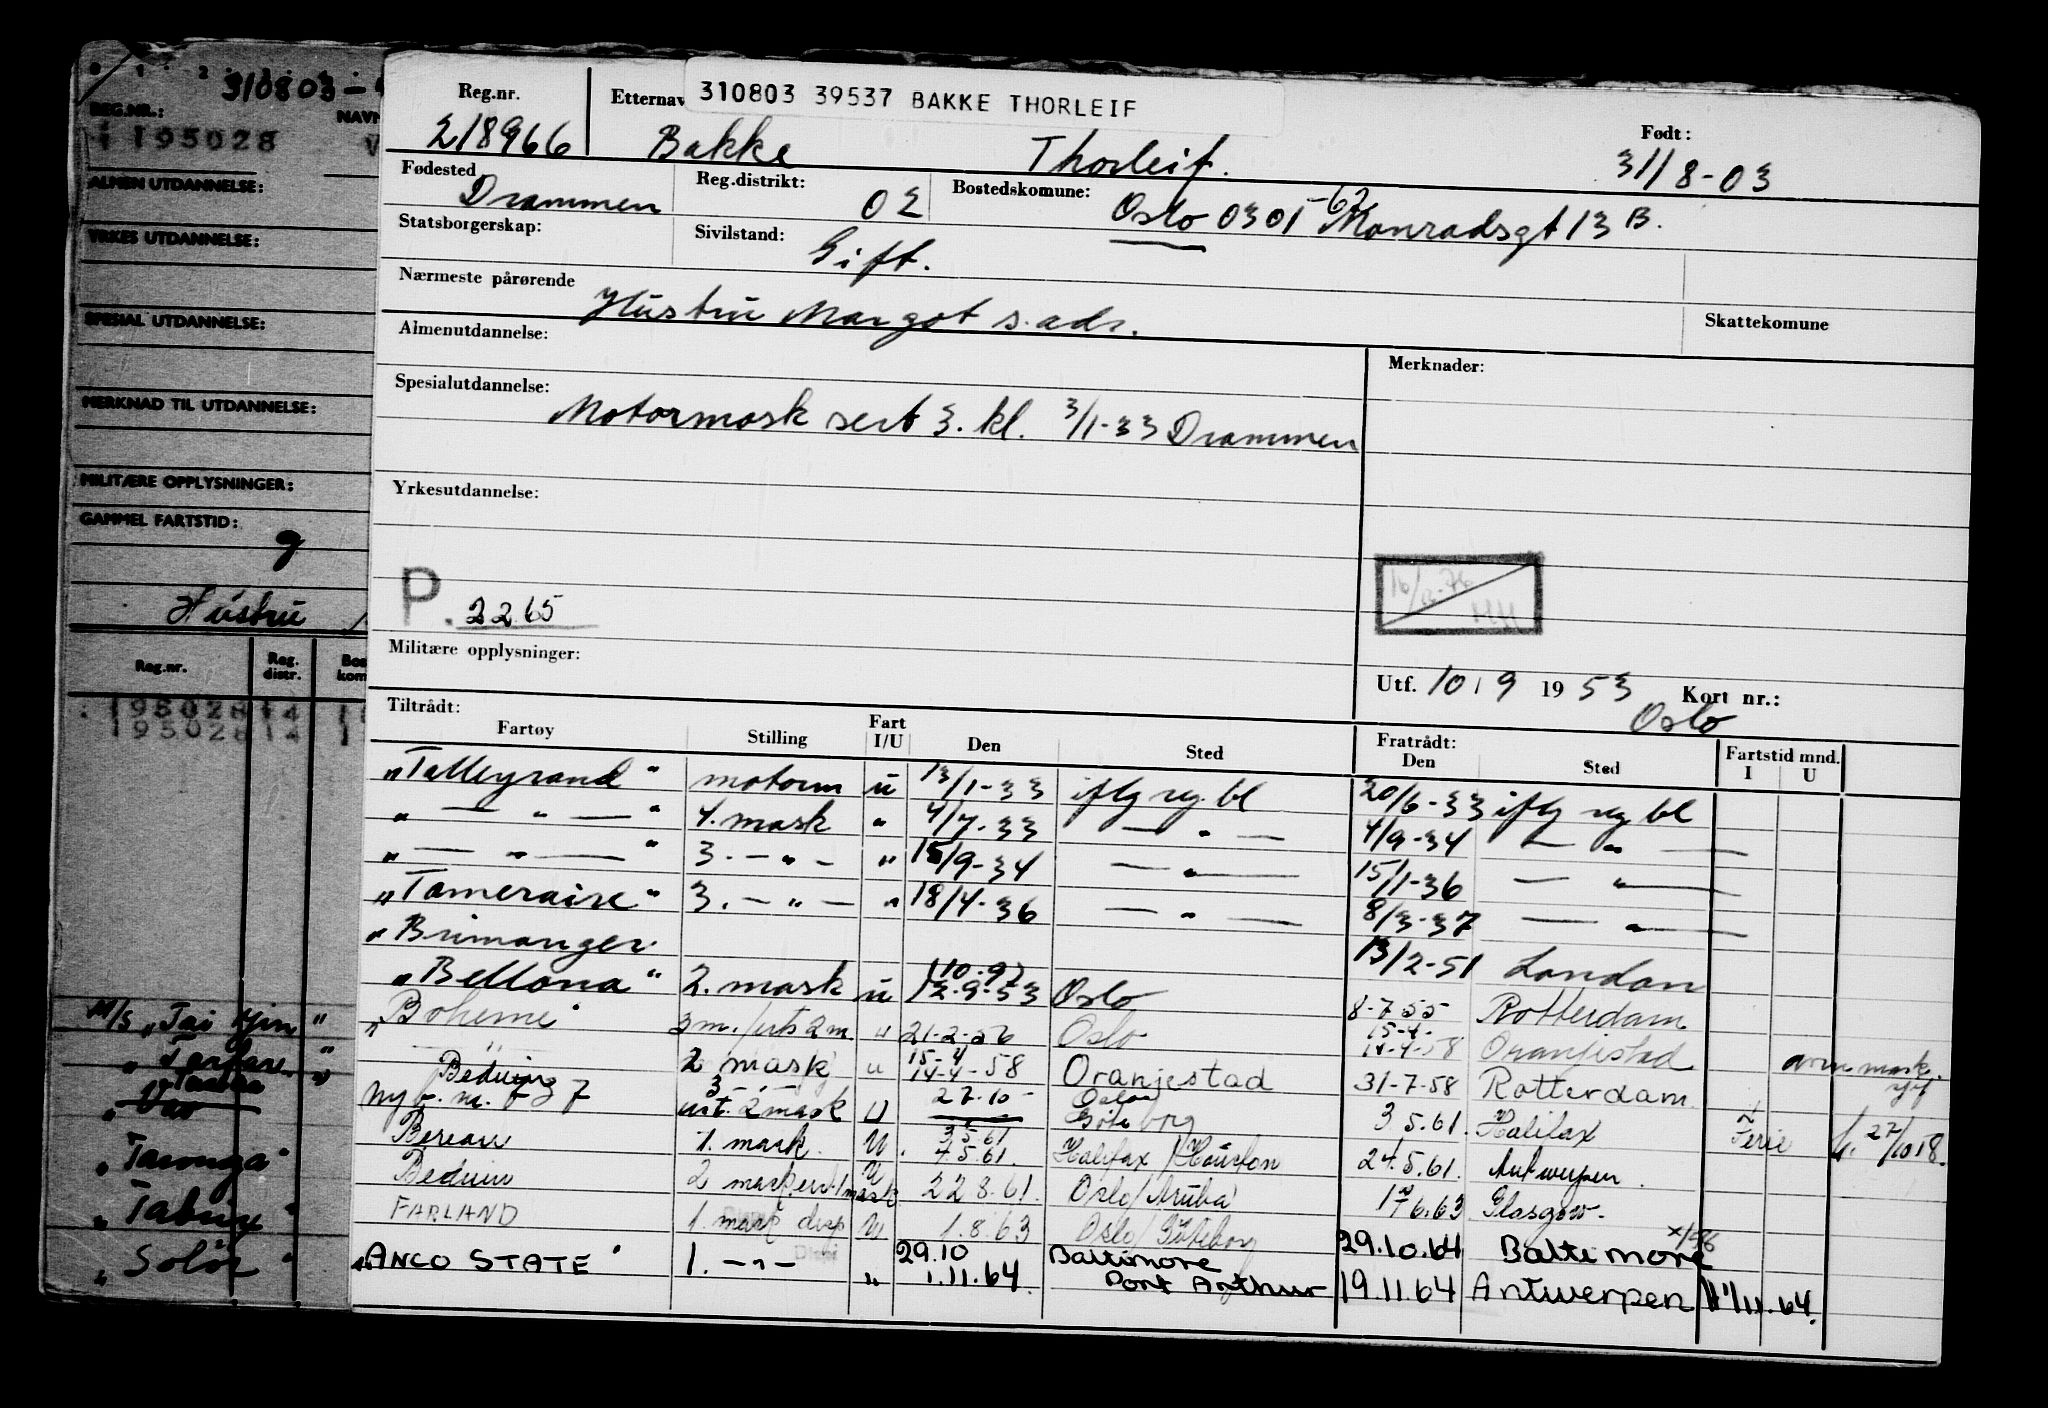 310803
REG.NR.:
NAVN
195028
ALMEN UTDANNELSE:
YRKES UTDANNELSE:
SPESIAL UTDANNELSE:
MERKNAD TIL UTDANNELSE:
MILITÆRE OPPLYSNINGER:
GAMMEL FARTSTID:
9
Hustru
Reg.nr. Reg. distr. Bos kom
195028 14 1
195028 14 1
M/S "Tai Yin"
"Tarifa"
"Taronga"
"Tatra"
"Solør"
Reg.nr. Etternav 310803 39537 BAKKE THORLEIF Født:
218966 Bakke Thorleif. 31/8-03
Fødested Reg.distrikt: Bostedskomune:
Drammen 02 Oslo 0301 -62 Monradsgt 13 B.
Statsborgerskap: Sivilstand: Gift.
Nærmeste pårørende
Hustru Margot s. adr.
Skattekomune
Almenutdannelse: Merknader:
Spesialutdannelse:
Motormask sert 3. kl. 3/1-33 Drammen
Yrkesutdannelse:
P. 2265
Militære opplysninger:
Utf. 10/9 1953 Kort nr.:
Oslo
Tiltrådt: Fratrådt: Fartstid mnd.
Fartøy Stilling Fart I/U Den Sted Den Sted I U
"Talleyrand" motorm u 13/1-33 iflg reg. bl 20/6-33 iflg reg bl
" — " — " 4. mask " 4/7-33 — " — 4/9-34 — " —
" — " — " 3. — " — " 15/9-34 — " — 15/1-36 — " —
"Tameraire" 3. — " — " 18/4-36 — " — 8/3-37 — " —
"Brimanger 13/2-51 London
"Bellona" 2. mask u 12-9-53 Oslo 8-7-55 Rotterdam
"Boheme" 3m./uts 2m. " 21-2-56 Oslo 15-4- 14-4-58 Oranjestad
Beduin 2 mask u 15-4 14-4-58 Oranjestad 31-7-58 Rotterdam
Nyb. n. 737 3 — " — urt. 2 mask U 27-10- Oslo Göteborg 3.5.61. Halifax Ferie f. 27/10 58.
Berean 1. mask. U. 3.5.61 4.5.61. Halifax/Houston 24.5.61. Antwerpen.
Beduin 2 mask ert 1 mask U 22 8.61. Oslo/Aruba 6.63 Glasgow.
FARLAND 1. mask disp U 1.8.63 Oslo/Göteborg 29.10.64 Baltimore
"ANCO STATE" 1. — " — " 29.10 1.11.64. Baltimore Port Arthur 19.11.64 Antwerpen 11/11.64.